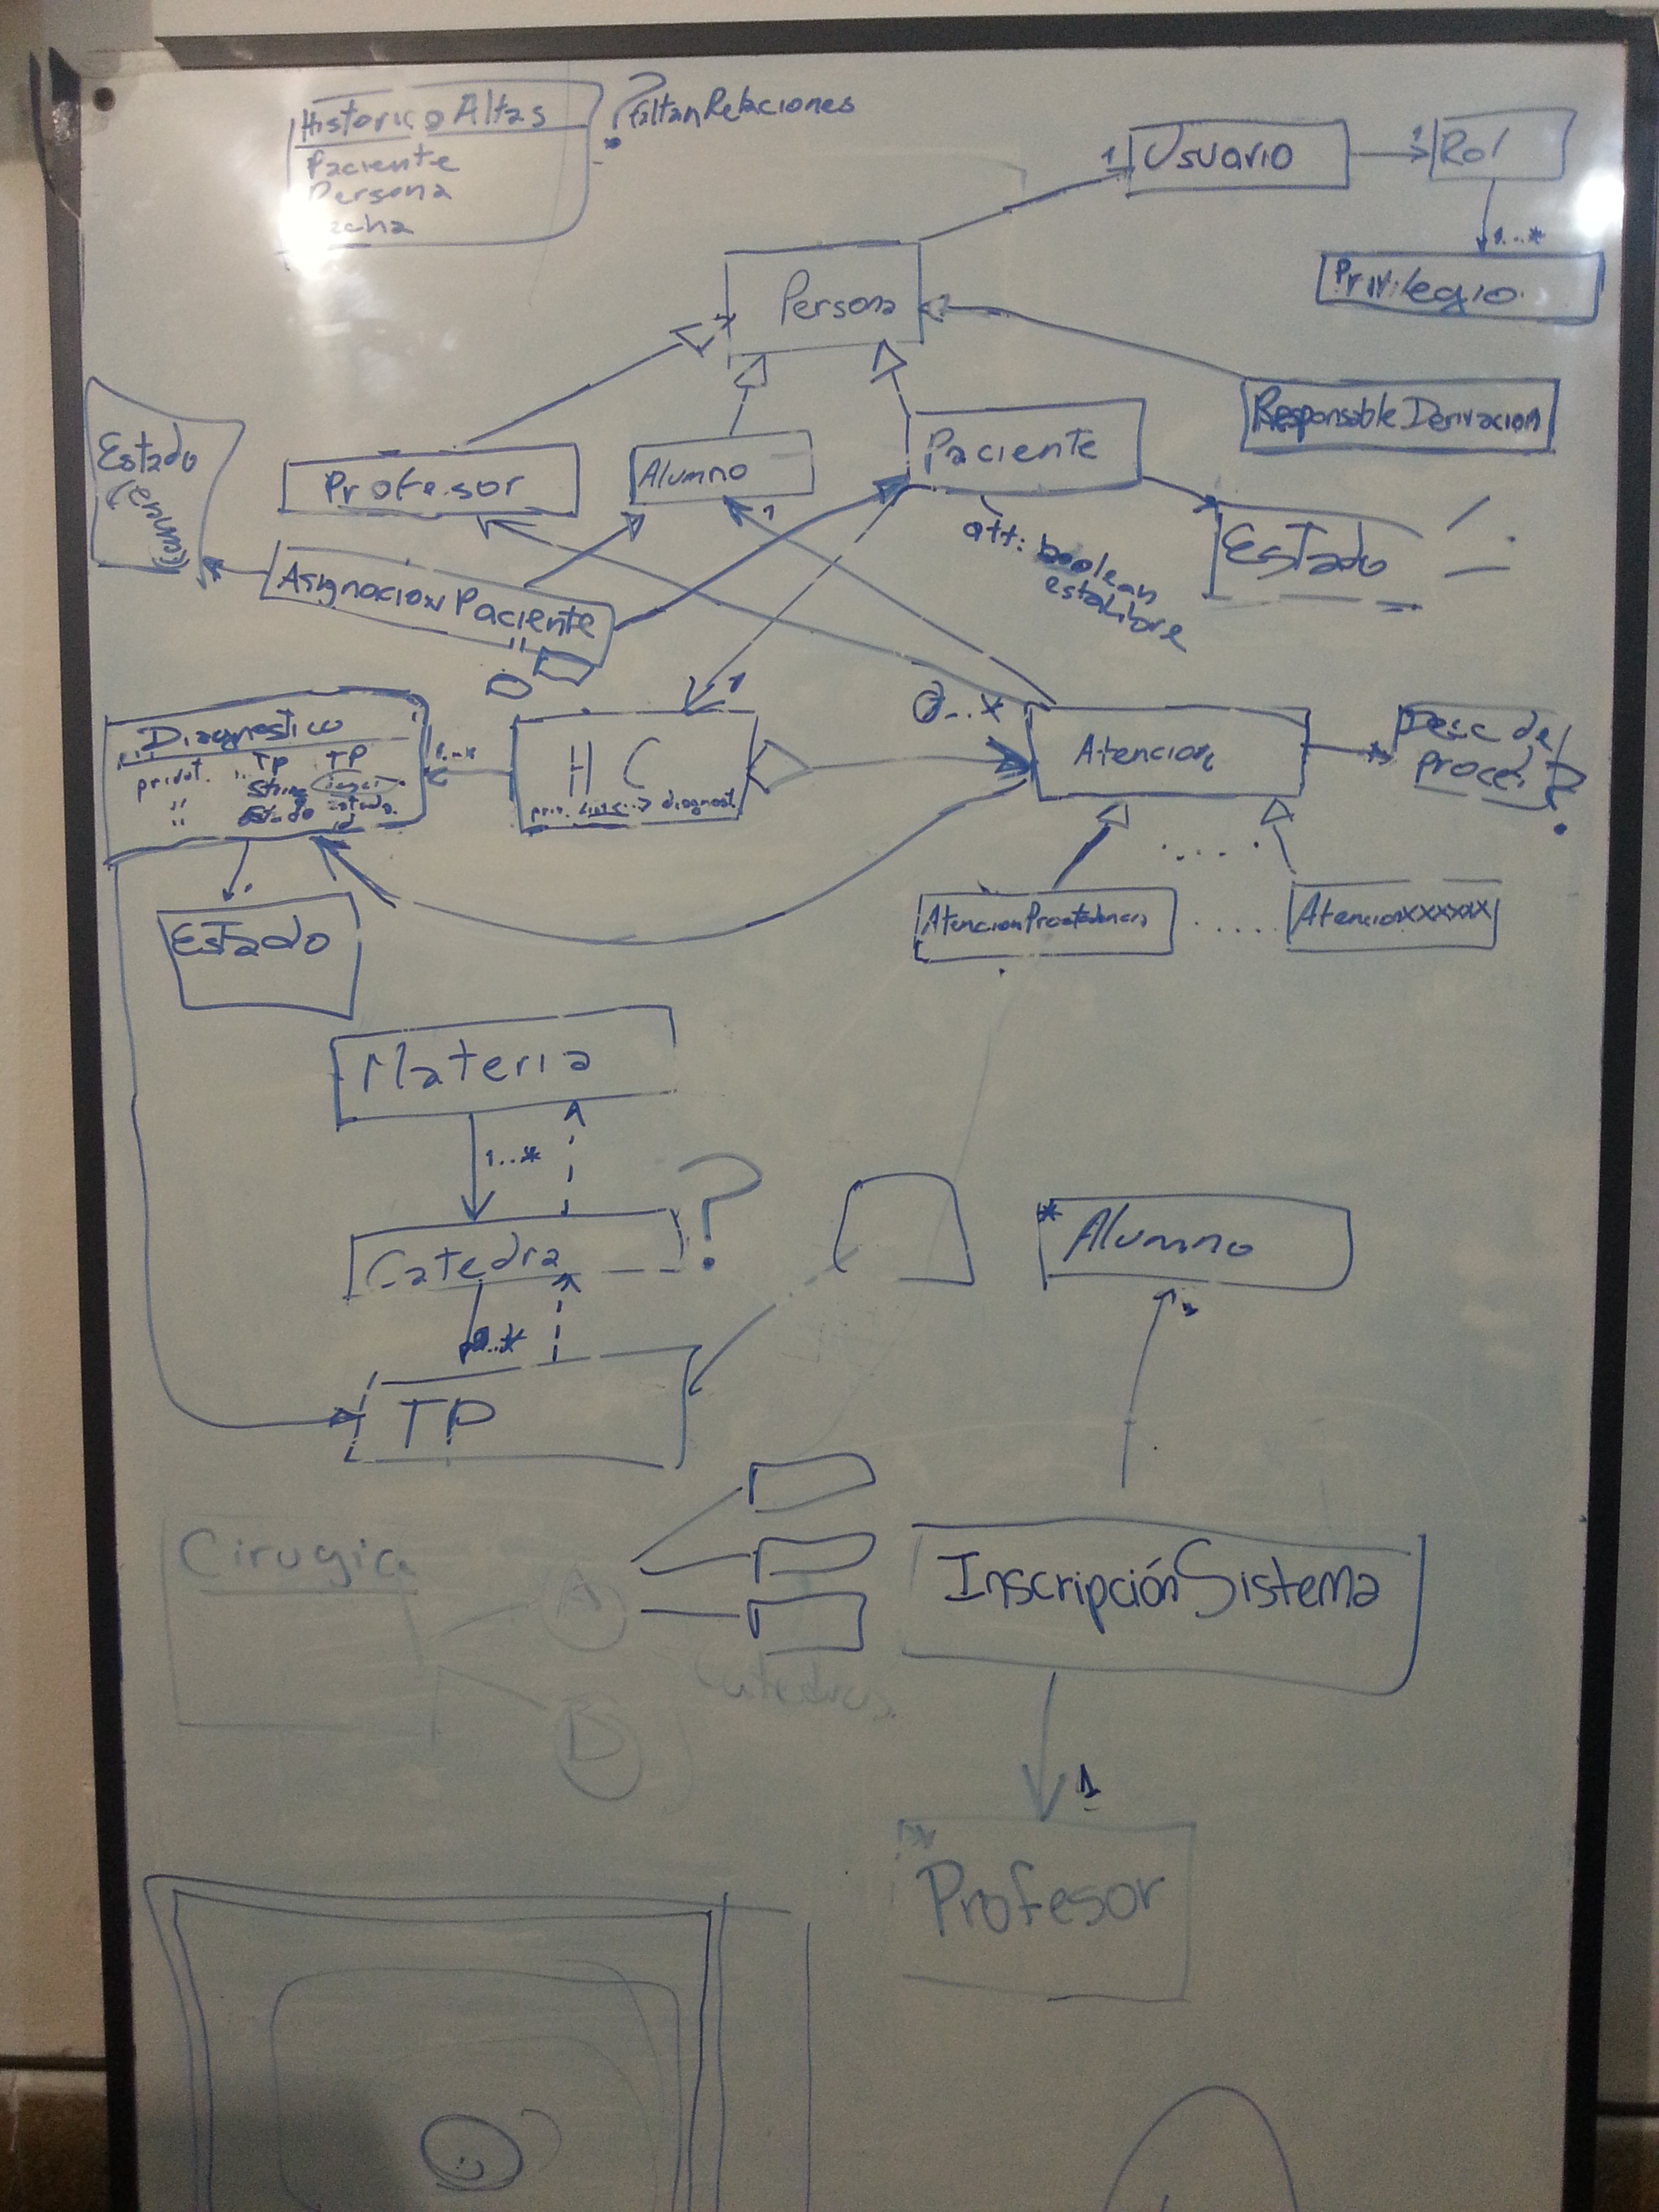 Historico Altas
Paciente
Persona
? faltan Relaciones
1 Usuario
1 Rol
1...*
Privilegio
Persona
Responsable Derivacion
Estado
(enum)
Profesor
Alumno
1
Paciente
att: boolean
estaLibre
Estado
Asignacion Paciente
Diagnostico
privat. TP TP
" String
" Estado
1...*
H C
1
0...*
Atencion
Desc de
proced ?
Estado
Atencion
Atencionxxxxxx
Materia
1...*
Catedra
?
TP
* Alumno
Cirugia
A
B
Catedras
InscripciónSistema
1
Profesor